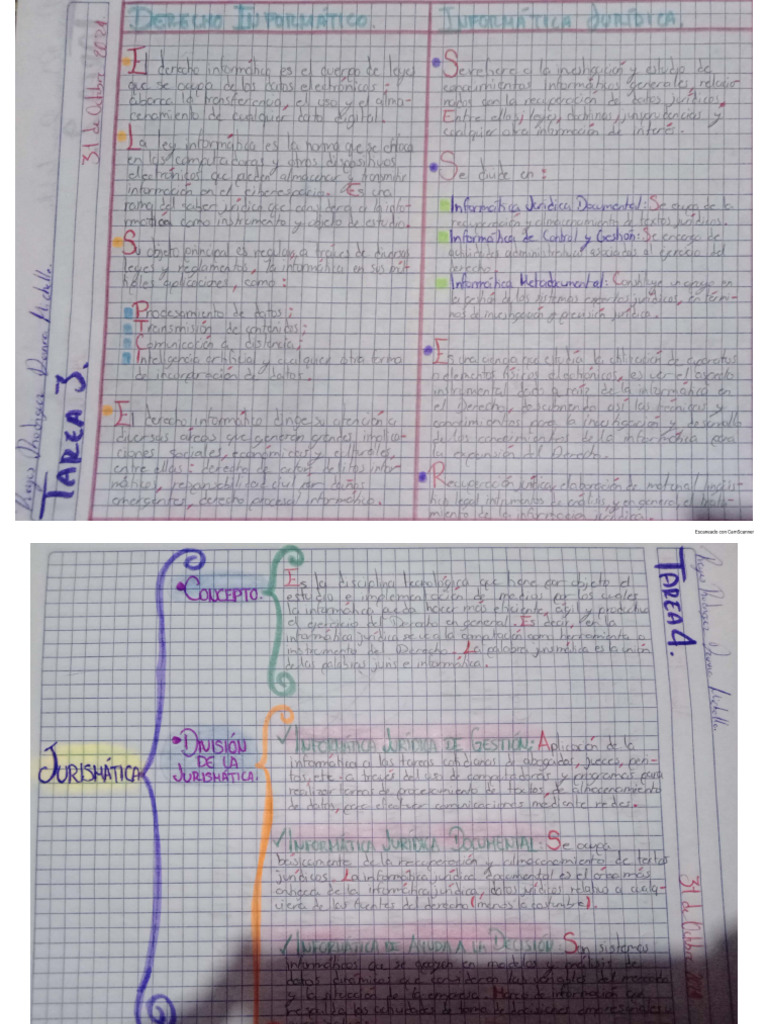 DERECHO INFORMÁTICO.
El derecho informático es el cuerpo de leyes
que se ocupa de los datos electrónicos;
abarca la transferencia, el uso y el alma-
cenamiento de cualquier dato digital.
La ley informática es la norma que se
en las computadoras y otros dispositivos
electrónicos que pueden almacenar y transmitir
información en el ciberespacio. Es una
rama del saber jurídico que a la infor-
mática como instrumento y objeto de estudio.
Su objeto principal es regular, a través de diversas
leyes y reglamentos, la informática en sus múl-
tiples aplicaciones, como:
Procesamiento de datos;
Transmisión de contenidos;
Comunicación a distancia;
Inteligencia artificial y cualquier otra forma
de incorporación de datos.
El derecho informático dirige su atención a
diversas áreas que generan grandes implica-
ciones sociales, económicas y culturales,
entre ellas: derecho de autor, delitos infor-
máticos, responsabilidad civil por daños
emergentes, derecho procesal informático.
INFORMÁTICA JURÍDICA.
Se refiere a la investigación y estudio de
conocimientos informáticos generales relacio-
nados con la recuperación de datos jurídicos.
Entre ellos, leyes, doctrinas, jurisprudencias y
cualquier otra información de interés.
Se divide en:
Informática Jurídica Documental: Se ocupa de la
recuperación y almacenamiento de textos jurídicos.
Informática de Control y Gestión: Se encarga de
actividades administrativas asociadas al ejercicio del
derecho.
Informática Metadocumental: Constituye un apoyo en
la gestión de los sistemas expertos jurídicos, en térmi-
nos de investigación y previsión jurídica.
Es una ciencia que estudia la utilización de aparatos
o elementos físicos electrónicos, es ver el aspecto
instrumental dado a raíz de la informática en
el Derecho, descubriendo así las técnicas y
conocimientos para la investigación y desarrollo
de los conocimientos de la informática para
la expansión del Derecho.
Recuperación jurídica, elaboración de material
legal, instrumentos de análisis y en general, el trata-
miento de la información jurídica.
31 de Octubre 2021
TAREA 3.
Escaneado con CamScanner
JURISMÁTICA
CONCEPTO.
Es la disciplina tecnológica que tiene por objeto el
estudio e implementación de medios por los cuales
la informática pueda hacer más eficiente, ágil y productivo
el ejercicio del Derecho en general. Es decir, en la
informática jurídica se ve a la computación como herramienta o
instrumento del Derecho. La palabra jurismática es la unión
de las palabras juris e informática.
DIVISIÓN
DE LA
JURISMÁTICA.
INFORMÁTICA JURÍDICA DE GESTIÓN: Aplicación de la
informática a las tareas cotidianas de abogados, jueces, peri-
tos, etc. a través del uso de computadoras y programas para
realizar tareas de procesamiento de textos, de almacenamiento
de datos, para efectuar comunicaciones mediante redes.
INFORMÁTICA JURÍDICA DOCUMENTAL: Se ocupa
básicamente de la recuperación y almacenamiento de textos
jurídicos. La informática jurídica documental es el área más
de la informática jurídica, datos jurídicos relativo a cualq-
uiera de las fuentes del derecho (menos la costumbre).
INFORMÁTICA DE AYUDA A LA DECISIÓN: Son sistemas
informáticos que se apoyan en modelos y análisis de
datos dinámicos que consideran las variables del mercado
y la situación de la empresa. Marco de información que
respalda las actividades de toma de decisiones empresariales
TAREA 4.
31 de Octubre 2021